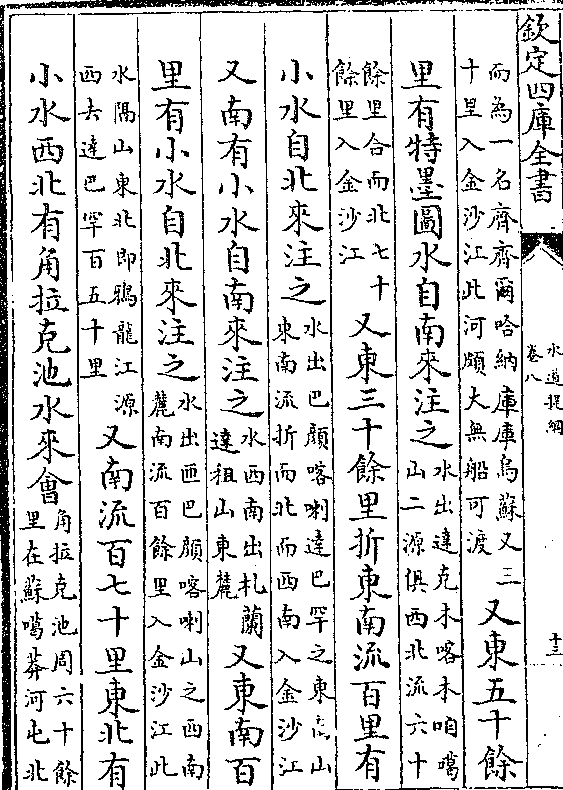 欽定四庫全書
水道提綱
卷八
十三
而為一名齊齊爾哈納庫庫烏蘇又三
十里入金沙江此河頗大無船可渡
又東五十餘
里有特墨圖水自南來注之
水出達克木喀木咱噶
山二源俱西北流六十
餘里合而北七十
餘里入金沙江
又東三十餘里折東南流百里有
小水自北來注之
水出巴顔喀喇達巴罕之東山
東南流折而北而西南入金沙江
又南有小水自南來注之
水西南出札蘭
達祖山東麓
又東南百
里有小水自北來注之
水出匝巴顔喀喇山之西南
麓南流百餘里入金沙江此
水隔山東北即鴉龍江源
西去達巴罕百五十里
又南流百七十里東北有
小水西北有角拉克池水來會
角拉克池周六十餘
里在蘇噶莽河屯北